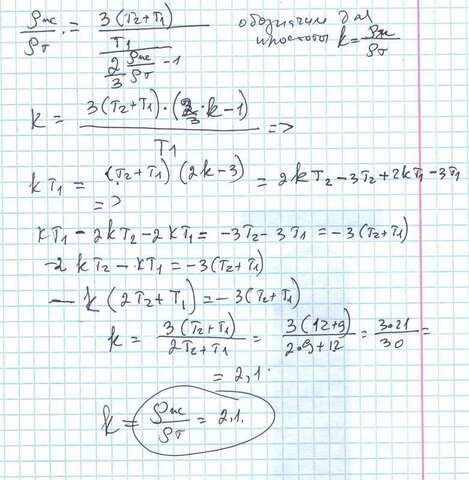 ρж/ρт = 3(T₂+T₁) / (T₁ / (2/3 ρж/ρт − 1)) обозначим для
простоты k = ρж/ρт
k = 3(T₂+T₁)·(2/3·k−1) / T₁ =>
kT₁ = (T₂+T₁)(2k−3) = 2kT₂−3T₂+2kT₁−3T₁
=>
kT₁ − 2kT₂−2kT₁ = −3T₂−3T₁ = −3(T₂+T₁)
−2kT₂ − kT₁ = −3(T₂+T₁)
− k(2T₂+T₁) = −3(T₂+T₁)
k = 3(T₂+T₁) / 2T₂+T₁ = 3(12+9) / 2·9+12 = 3·21 / 30 =
= 2,1.
k = ρж/ρт = 2,1.